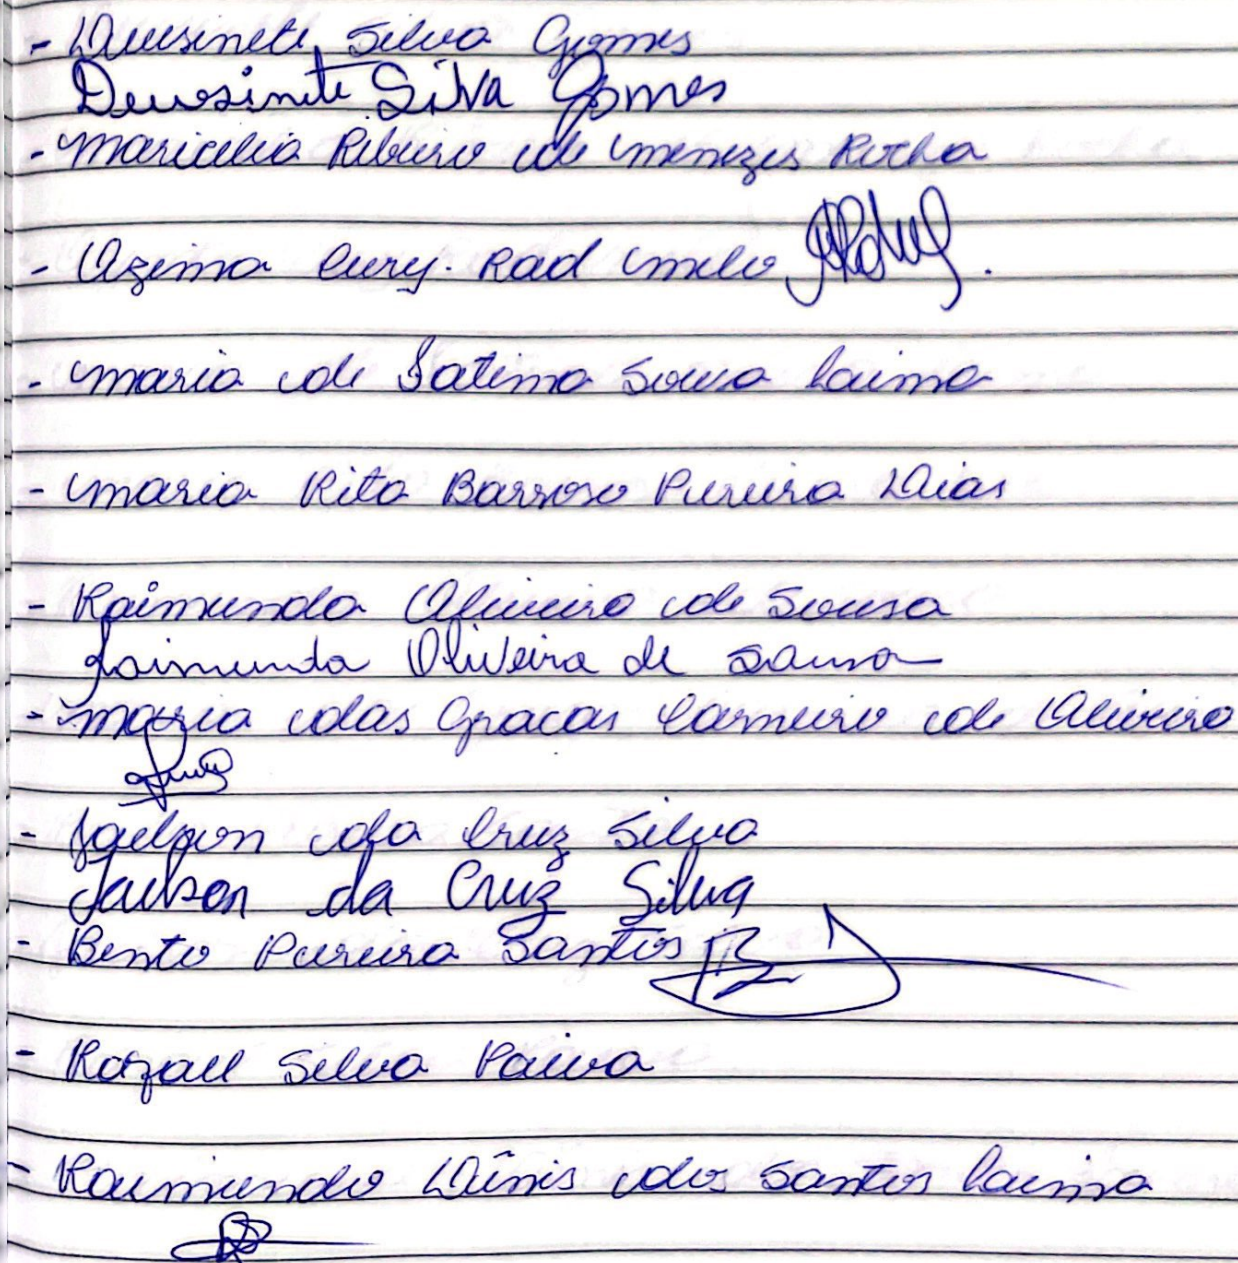 - Deusinete Silva Gomes
Deusinete Silva Gomes
- Maricelia Ribeiro de Menezes Rocha
- Azima Cury. Rad Melo
- Maria de Fatima Sousa Caima
- Maria Rita Barroso Pereira Dias
- Raimunda Oliveira de Sousa
Raimunda Oliveira de Sousa
- Maria das Graças Carneiro de Oliveira
- Jaelson da Cruz Silva
Jaelson da Cruz Silva
- Bento Pereira Santos
- Rafael Silva Paiva
- Raimundo Dênis dos Santos Caima